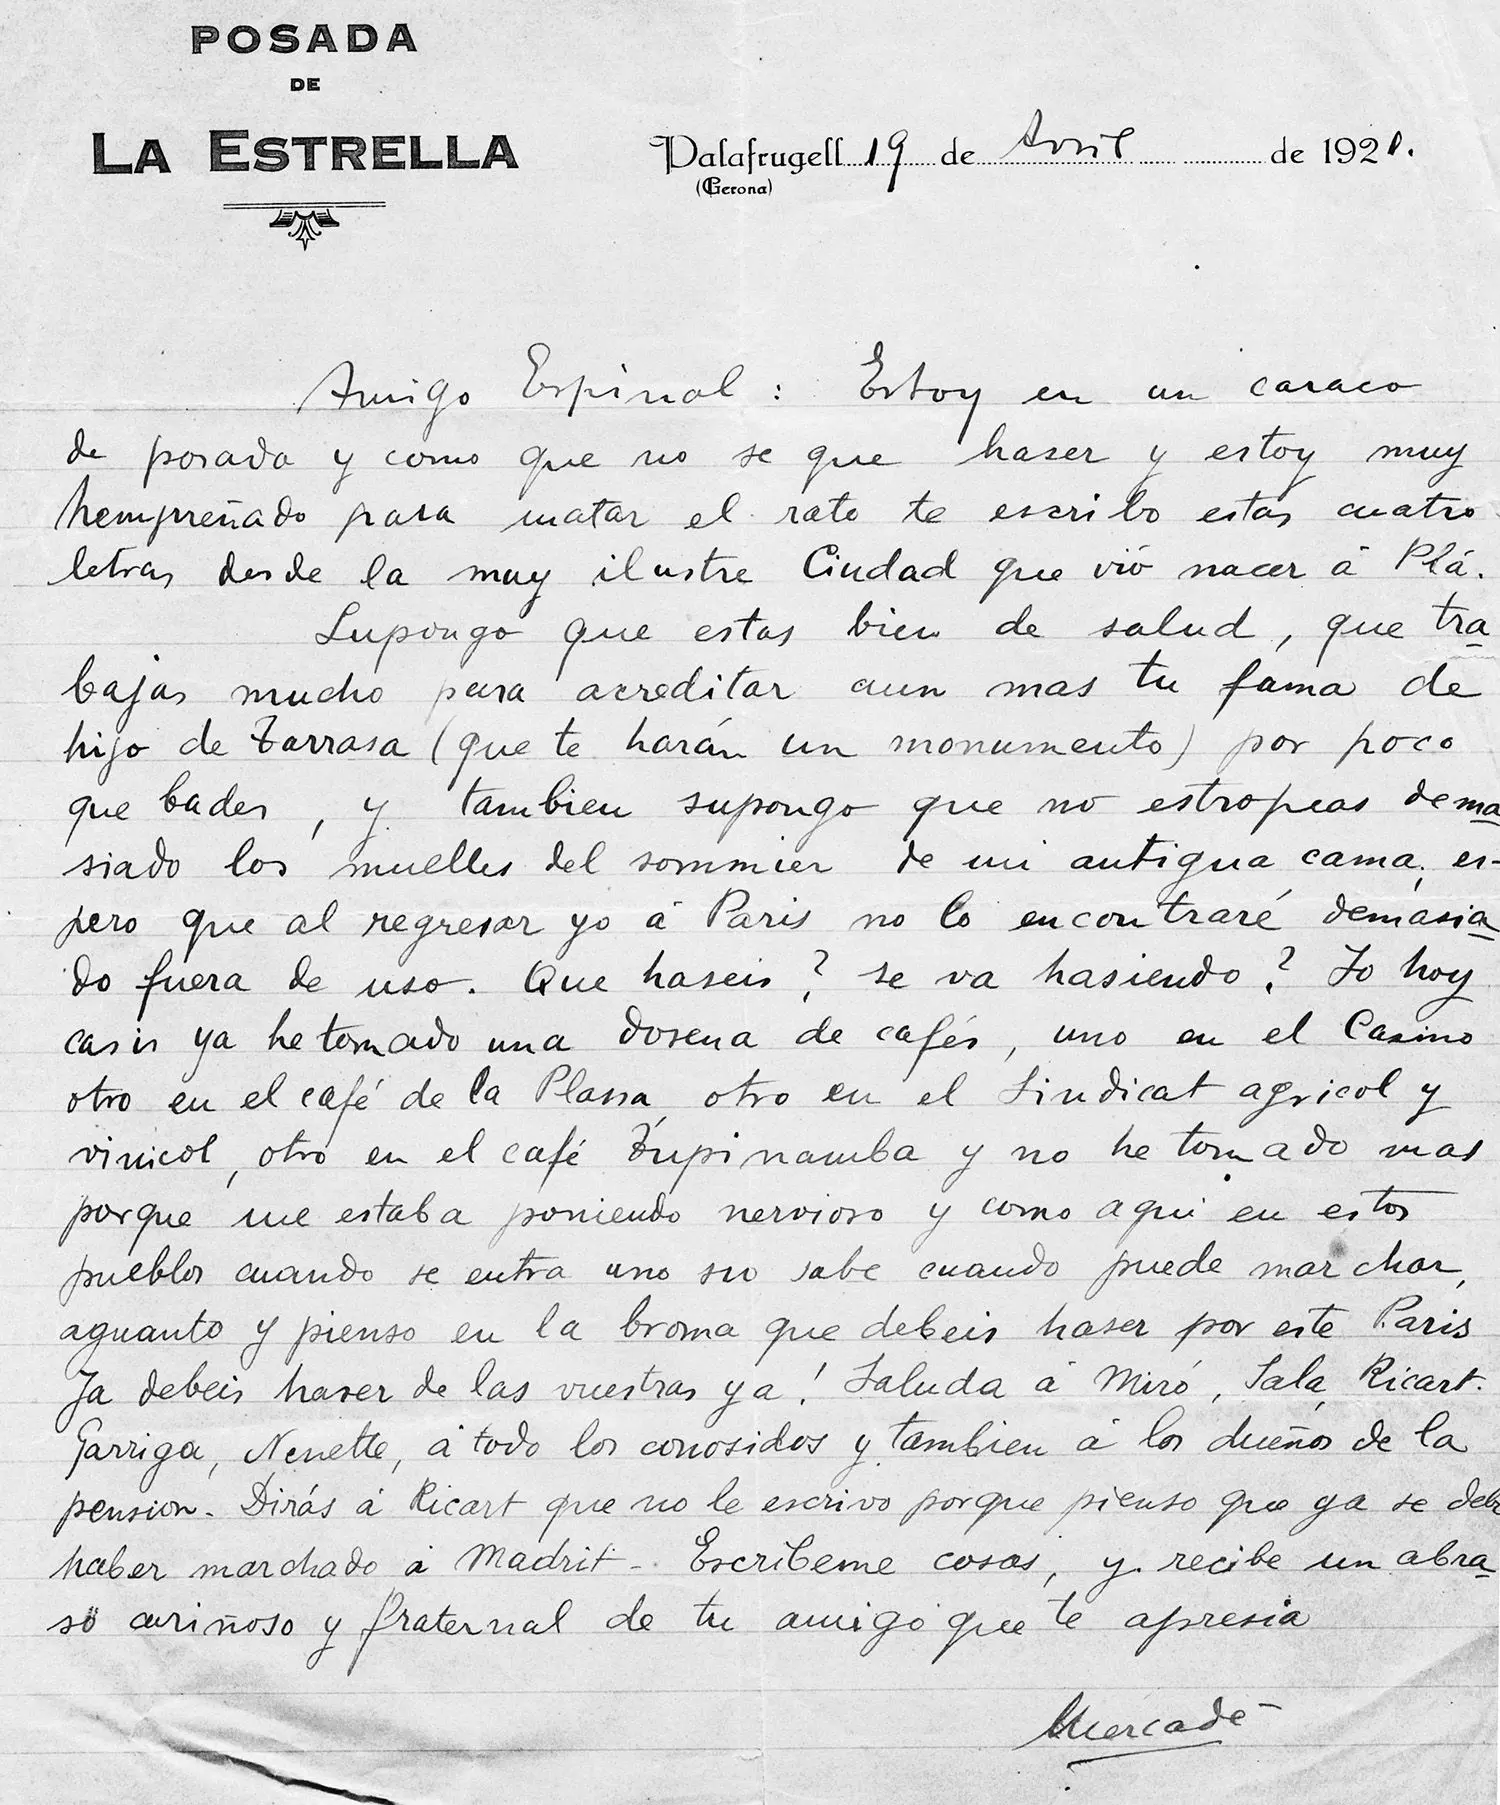 POSADA
DE
LA ESTRELLA
Palafrugell 19 de Avril de 1921.
(Gerona)
Amigo Espinal: Estoy en un caraco
de posada y como que no se que haser y estoy muy
hempreñado para matar el rato te escribo estas cuatro
letras desde la muy ilustre Ciudad que vió nacer á Plá.
Supongo que estas bien de salud, que tra
bajas mucho para acreditar aun mas tu fama de
hijo de Tarrasa (que te harán un monumento) por poco
que bades, y tambien supongo que no estropeas dema
siado los muelles del sommier de mi antigua cama, es-
pero que al regresar yo á Paris no lo encontraré demasia
do fuera de uso. Que haseis? se va hasiendo? Jo hoy
casis ya he tomado una dosena de cafés, uno en el Casino
otro en el café de la Plassa, otro en el Sindicat agricol y
vinicol, otro en el café Tupinamba y no he tomado mas
porque me estaba poniendo nervioso y como aqui en estos
pueblos cuando se entra uno no sabe cuando puede marchar,
aguanto y pienso en la broma que debeis haser por este Paris
Ja debeis haser de las vuestras ya! Saluda á Miró, Sala, Ricart.
Garriga, Nenette, á todo los conosidos y tambien á los dueños de la
pension. Dirás á Ricart que no le escrivo porque pienso que ya se debe
haber marchado á Madrit - Escribeme cosas, y recibe un abra
so cariñoso y fraternal de tu amigo que te apresia
Mercadé